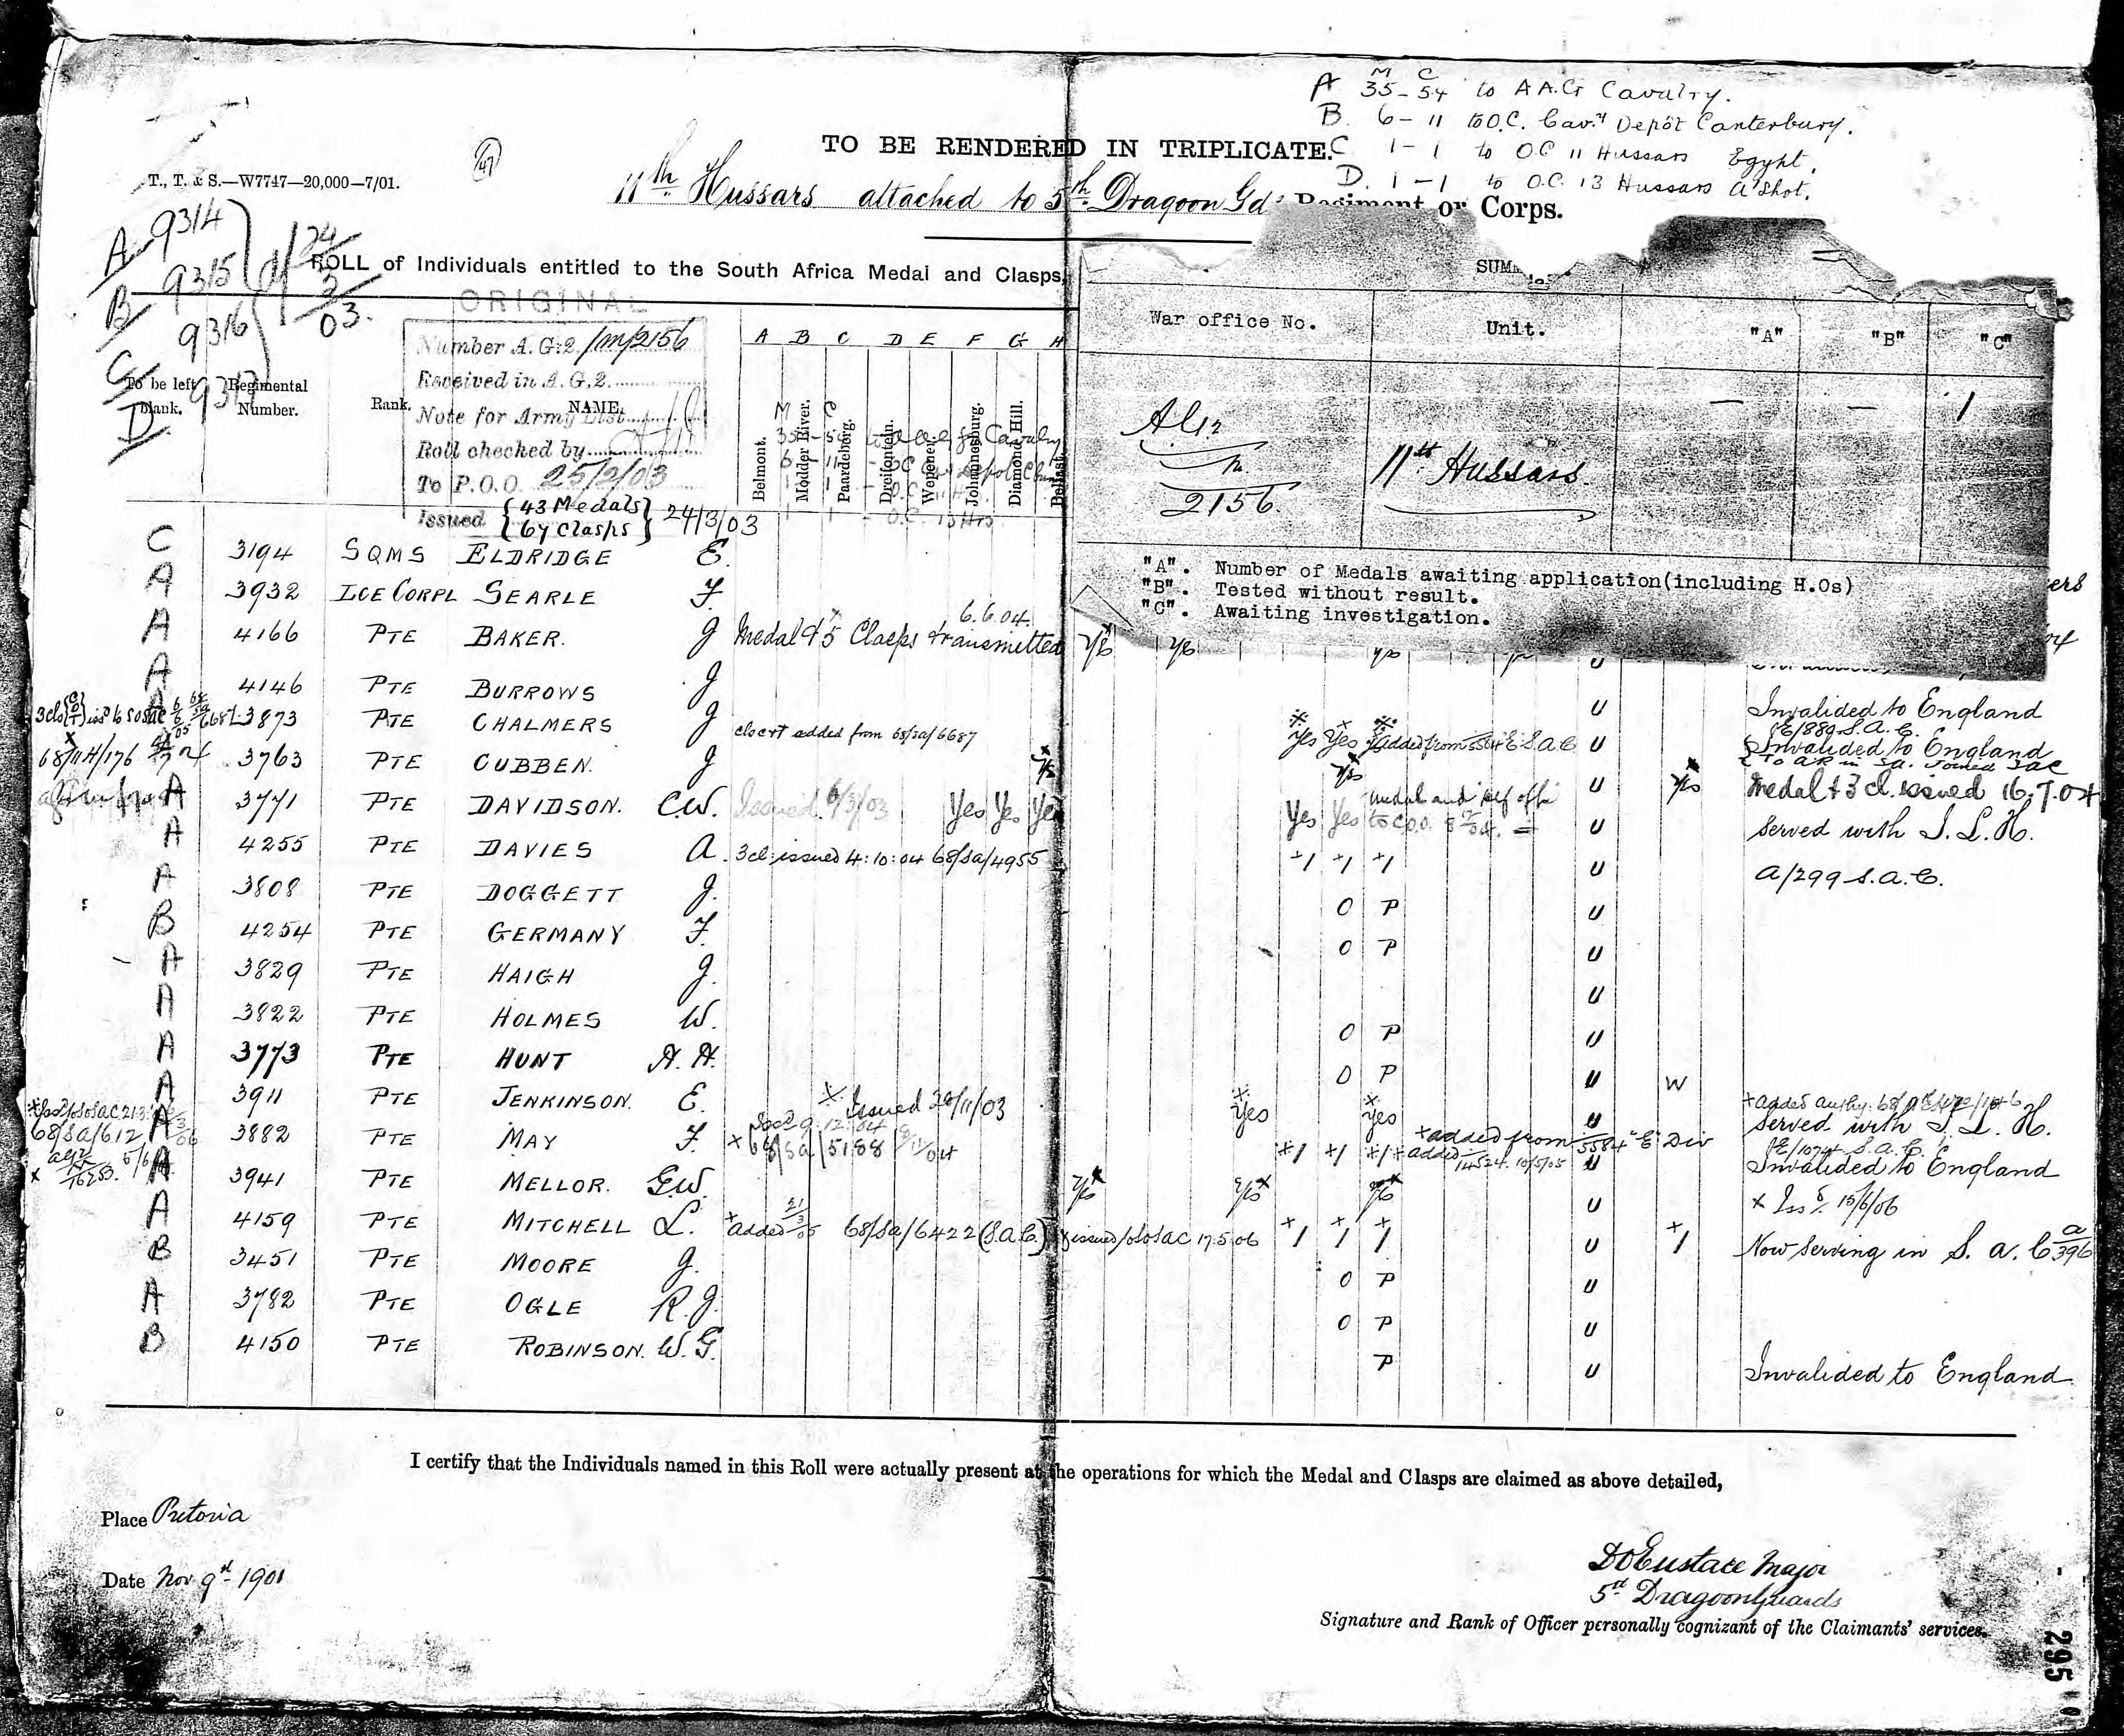 A M 35 – C 54 to A.A.G. Cavalry.
B. 6 – 11 to O.C. Cav.y Depôt Canterbury.
C 1 – 1 to O.C 11 Hussars Egypt.
D. 1 – 1 to O.C. 13 Hussars A'shot.
TO BE RENDERED IN TRIPLICATE.
47
T., T. & S.—W7747—20,000—7/01.
11th Hussars attached to 5th Dragoon Gds Regiment or Corps.
A 9314
B 9315
C 9316
D 9317
24/2/03.
ROLL of Individuals entitled to the South Africa Medal and Clasps,
ORIGINAL
Number A.G.2. /m/2156
Received in A.G.2.
Note for Army List
Roll checked by
To P.O.O. 25/2/03
Issued {43 Medals 64 Clasps} 24/3/03
To be left blank.
Regimental Number.
Rank.
NAME.
A B C D E F G H
Belmont.
Modder River.
Paardeberg.
Driefontein.
Wepener.
Johannesburg.
Diamond Hill.
Belfast.
War office No. Unit. "A" "B" "C"
— — 1
AG 2
m
2156.
11th Hussars.
"A". Number of Medals awaiting application(including H.Os)
"B". Tested without result.
"C". Awaiting investigation.
C 3194 SQMS ELDRIDGE E.
A 3932 LCE CORPL SEARLE F.
6.6.04.
A 4166 PTE BAKER. J Medal & 5 Clasps transmitted Yes Yes
A 4146 PTE BURROWS J U Invalided to England
3873 PTE CHALMERS J clasps added from 68/Sa/6687 Yes Yes added from 5584 E S.A.C U E/889 S.A.C. Invalided to England
68/11H/176 3763 PTE CUBBEN. J Yes Yes U Yes Medal & 3 cl. issued 16.7.04
A 3771 PTE DAVIDSON. C.W. Issued 6/3/03 Yes Yes Yes Yes Yes U Served with I.L.H.
A 4255 PTE DAVIES A. 3 cl: issued 4:10:04 68/Sa/4955 +1 +1 +1 U A/299 S.A.C.
A 3808 PTE DOGGETT J. O P U
B 4254 PTE GERMANY F. O P U
A 3829 PTE HAIGH J. U
A 3822 PTE HOLMES W. O P U
A 3773 PTE HUNT A. H. O P U W
A 3911 PTE JENKINSON. E. Issued 20/11/03 Yes Yes U Served with I. L. H.
68/Sa/612 A 3882 PTE MAY F. x 68/Sa/5188 +1 +1 +1 +added from 5584 "E" Div U E/1074 S.A.C. Invalided to England
A 3941 PTE MELLOR. G.W. Yes Yes Yes U x Iss'd 15/6/06
A 4159 PTE MITCHELL L. +added 21/3/05 68/Sa/6422 (S.A.C.) issued 17.5.06 +1 +1 +1 U +1 Now serving in S.A.C A/396
B 3451 PTE MOORE J. O P U
A 3782 PTE OGLE R. J. O P U
B 4150 PTE ROBINSON. W. G. P U Invalided to England
I certify that the Individuals named in this Roll were actually present at the operations for which the Medal and Clasps are claimed as above detailed,
Place Pretoria
Date Nov 9th 1901
Eustace Major
5th Dragoon Guards
Signature and Rank of Officer personally cognizant of the Claimants' services.
295